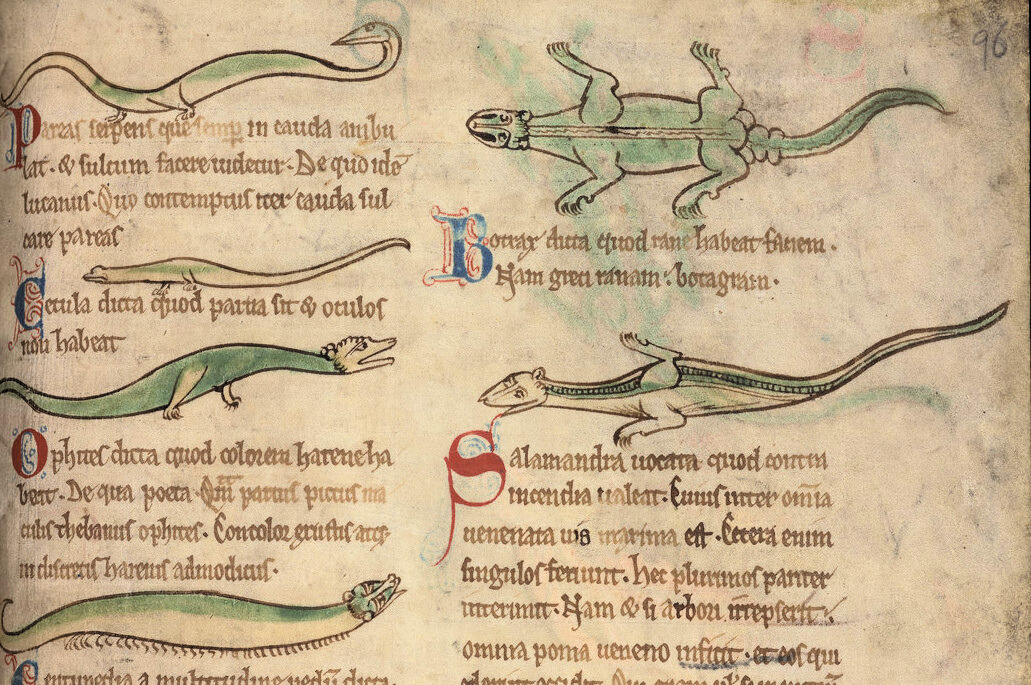 Pareas serpens que semp in cauda anbu
lat. & sulcum facere uidetur. De quo idē
lucanus. Quo contemptus iter cauda sul
care pareas
Cecula dicta quod parua sit & oculos
non habeat
Ophites dicta quod colorem harene ha
beat. De qua poeta. Qm̄ paruis pictus ma
culis thebanus ophites. Concolor exustis atq;
indiscretis harenis admodicus.
Centupedia a multitudine pedū dicta
96
Botrax dicta quod rane habeat faciem.
Nam greci ranam: botagram.
Salamandra uocata quod contra
incendia ualeat. Cuius inter omīa
uenenata uis maxima est. Cetera enim
singulos feriunt. Hec plurimos pariter
interimit. Nam & si arbori irrepserit.
omnia poma ueneno inficit. et eos qui
ederint occidit.